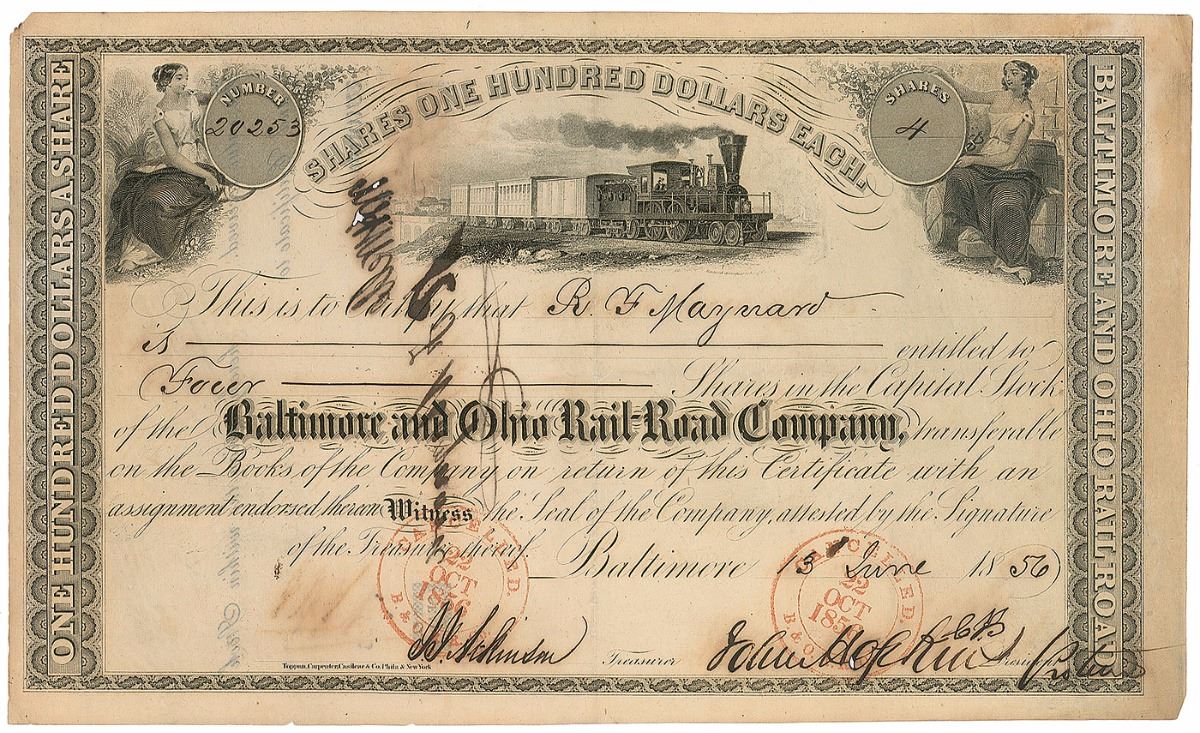 ONE HUNDRED DOLLARS A SHARE
NUMBER
20253
SHARES ONE HUNDRED DOLLARS EACH.
SHARES
4
BALTIMORE AND OHIO RAIL ROAD
This is to Certify that R. F Maynard
is entitled to
Four Shares in the Capital Stock
of the Baltimore and Ohio Rail-Road Company, transferable
on the Books of the Company on return of this Certificate with an
assignment endorsed thereon Witness the Seal of the Company, attested by the Signature
of the Treasurer thereof. Baltimore 13 June 1856
CANCELLED.
22
OCT
1856
B & O
CANCELLED.
22
OCT
1856
B & O
Treasurer
President
Toppan, Carpenter, Casilear & Co. Phila & New York